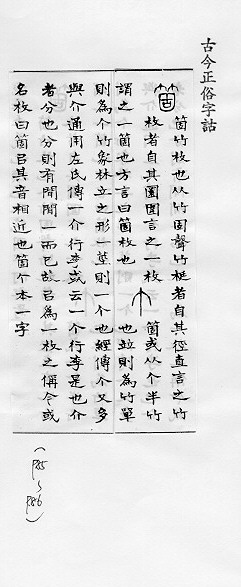 古今正俗字詁
箇竹枚也从竹固聲竹梃者自其徑直言之竹
枚者自其圜圍言之一枚 箇或从个半竹
謂之一箇也方言曰箇枚也 也竝則為竹單
則為个竹象林立之形一莖則一个也經傳个又多
與介通用左氏傳一介行李或云一个行李是也介
者分也分則有閒閒一而已故㠯為一枚之偁今或
名枚曰箇㠯其音相近也箇个本一字
(P85
~
P86)